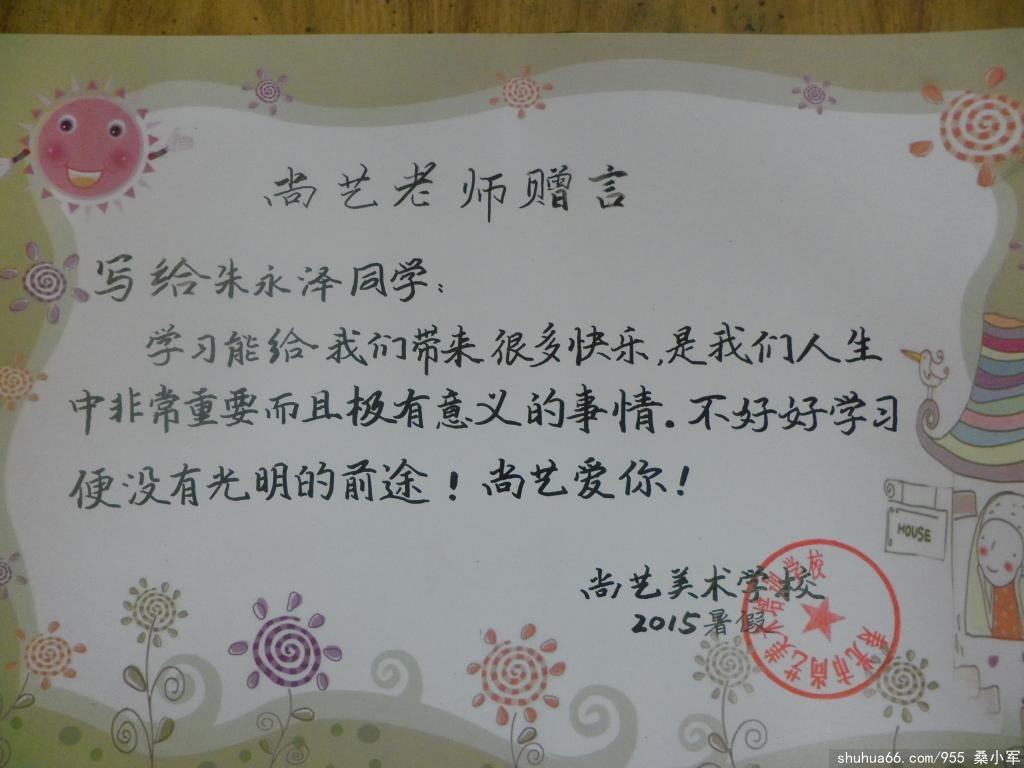 尚艺老师赠言
写给朱永泽同学：
学习能给我们带来很多快乐,是我们人生
中非常重要而且极有意义的事情。不好好学习
便没有光明的前途！尚艺爱你！
HOUSE
尚艺美术学校
2015暑假
市尚艺美术培训学校
shuhua66.com/955 桑小军